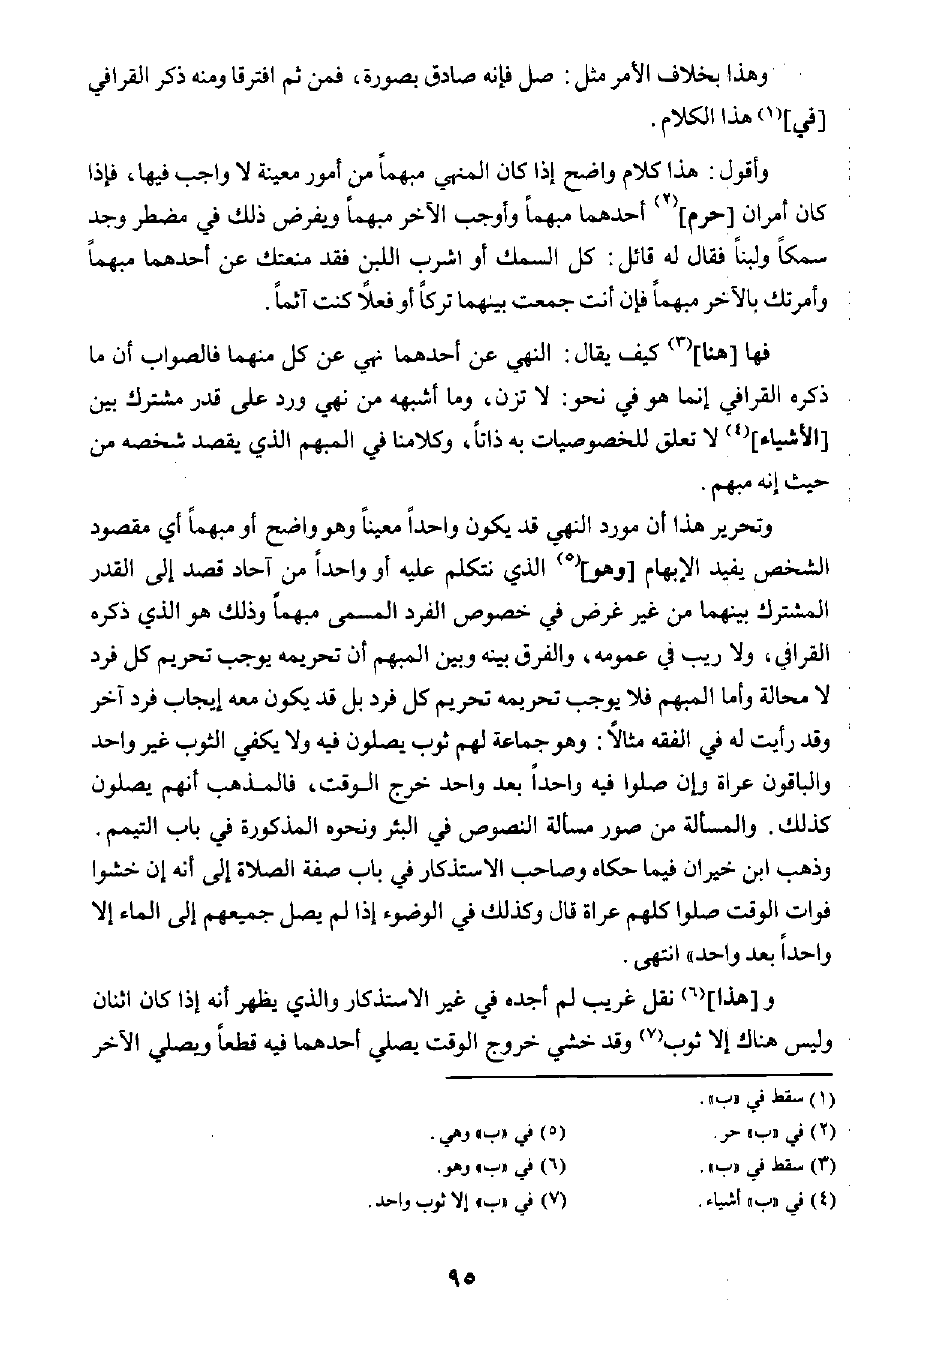 وهذا بخلاف الأمر مثل: صل فإنه صادق بصورة، فمن ثم افترقا ومنه ذكر القرافي
[في](١) هذا الكلام.
وأقول: هذا كلام واضح إذا كان المنهي مبهماً من أمور معينة لا واجب فيها، فإذا
كان أمران [حرم](٢) أحدهما مبهماً وأوجب الآخر مبهماً ويفرض ذلك في مضطر وجد
سمكاً ولبناً فقال له قائل: كل السمك أو اشرب اللبن فقد منعتك عن أحدهما مبهماً
وأمرتك بالآخر مبهماً فإن أنت جمعت بينهما تركاً أو فعلاً كنت آثماً.
فها [هنا](٣) كيف يقال: النهي عن أحدهما نهي عن كل منهما فالصواب أن ما
ذكره القرافي إنما هو في نحو: لا تزن، وما أشبهه من نهي ورد على قدر مشترك بين
[الأشياء](٤) لا تعلق للخصوصيات به ذاتاً، وكلامنا في المبهم الذي يقصد شخصه من
حيث إنه مبهم.
وتحرير هذا أن مورد النهي قد يكون واحداً معيناً وهو واضح أو مبهماً أي مقصود
الشخص يفيد الإبهام [وهو](٥) الذي نتكلم عليه أو واحداً من آحاد قصد إلى القدر
المشترك بينهما من غير غرض في خصوص الفرد المسمى مبهماً وذلك هو الذي ذكره
القرافي، ولا ريب في عمومه، والفرق بينه وبين المبهم أن تحريمه يوجب تحريم كل فرد
لا محالة وأما المبهم فلا يوجب تحريمه تحريم كل فرد بل قد يكون معه إيجاب فرد آخر
وقد رأيت له في الفقه مثالاً: وهو جماعة لهم ثوب يصلون فيه ولا يكفي الثوب غير واحد
والباقون عراة وإن صلوا فيه واحداً بعد واحد خرج الوقت، فالمذهب أنهم يصلون
كذلك. والمسألة من صور مسألة النصوص في البئر ونحوه المذكورة في باب التيمم.
وذهب ابن خيران فيما حكاه وصاحب الاستذكار في باب صفة الصلاة إلى أنه إن خشوا
فوات الوقت صلوا كلهم عراة قال وكذلك في الوضوء إذا لم يصل جميعهم إلى الماء إلا
واحداً بعد واحد» انتهى.
و [هذا](٦) نقل غريب لم أجده في غير الاستذكار والذي يظهر أنه إذا كان اثنان
وليس هناك إلا ثوب(٧) وقد خشي خروج الوقت يصلي أحدهما فيه قطعاً ويصلي الآخر
(١) سقط في «ب».
(٢) في «ب» حر.
(٣) سقط في «ب».
(٤) في «ب» أشياء.
(٥) في «ب» وهي.
(٦) في «ب» وهو.
(٧) في «ب» إلا ثوب واحد.
٩٥